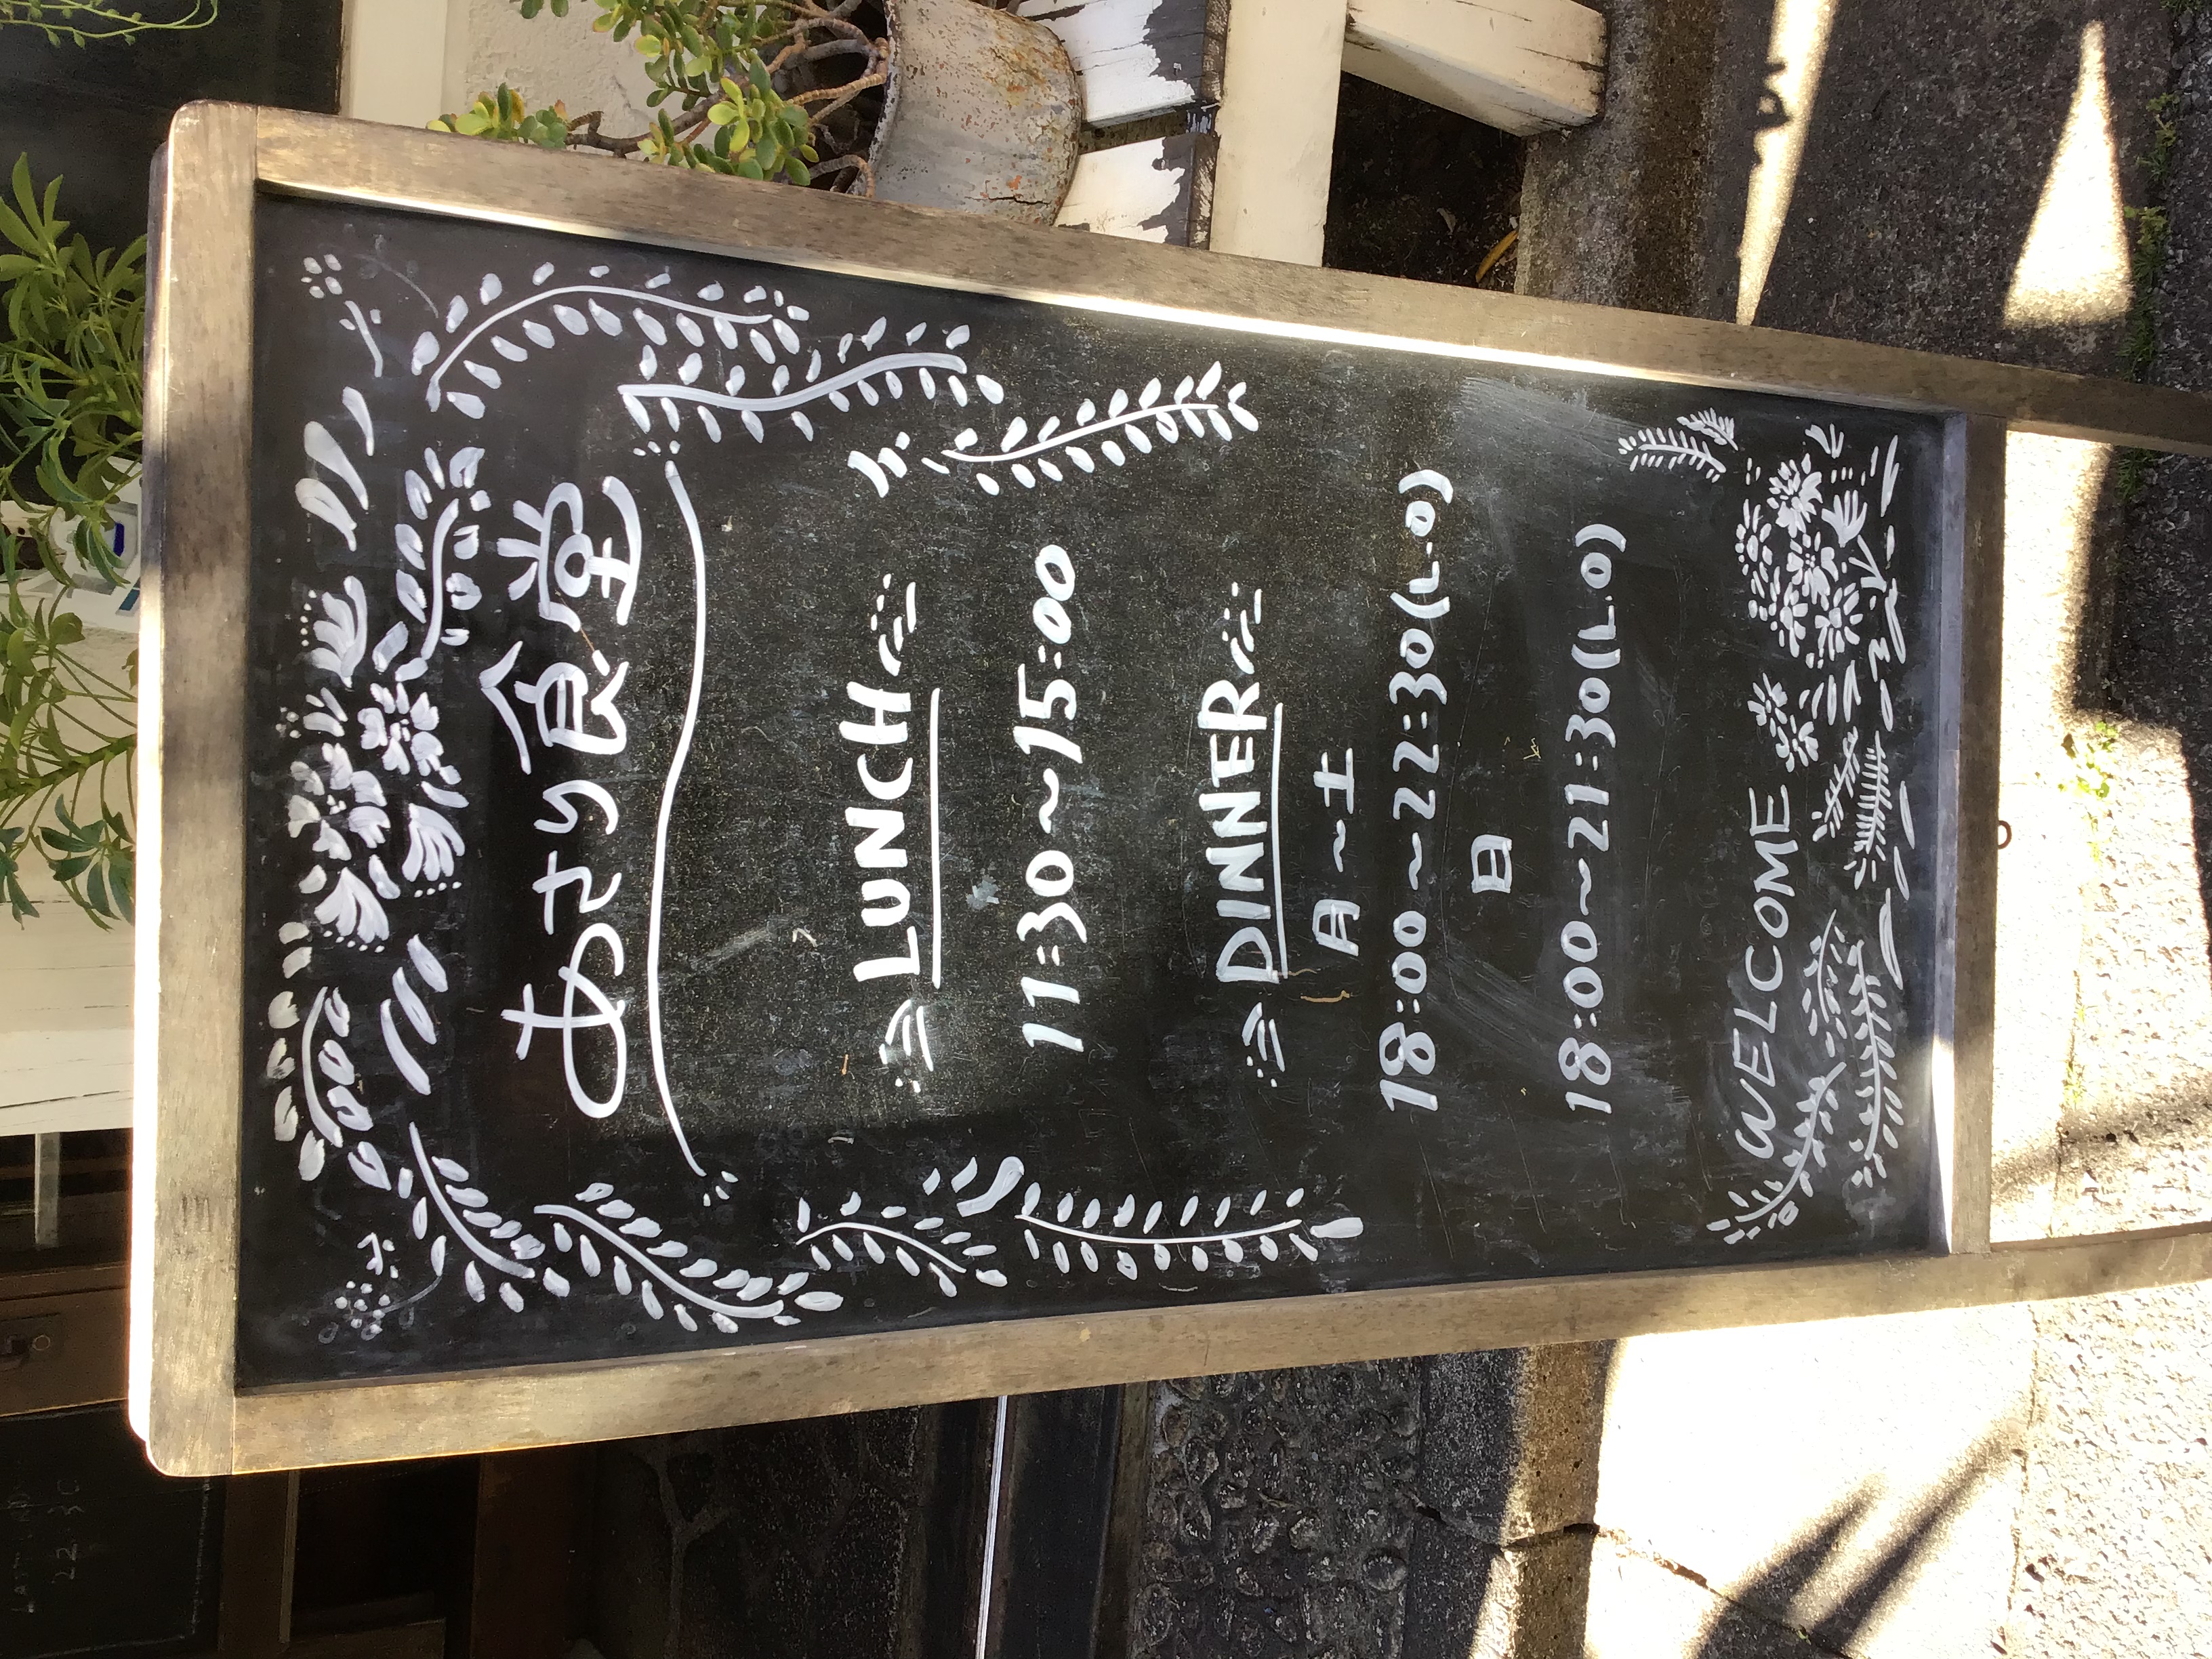 あさり食堂
LUNCH
11:30～15:00
DINNER
月～土
18:00～22:30(L.O)
日
18:00～21:30(L.O)
WELCOME